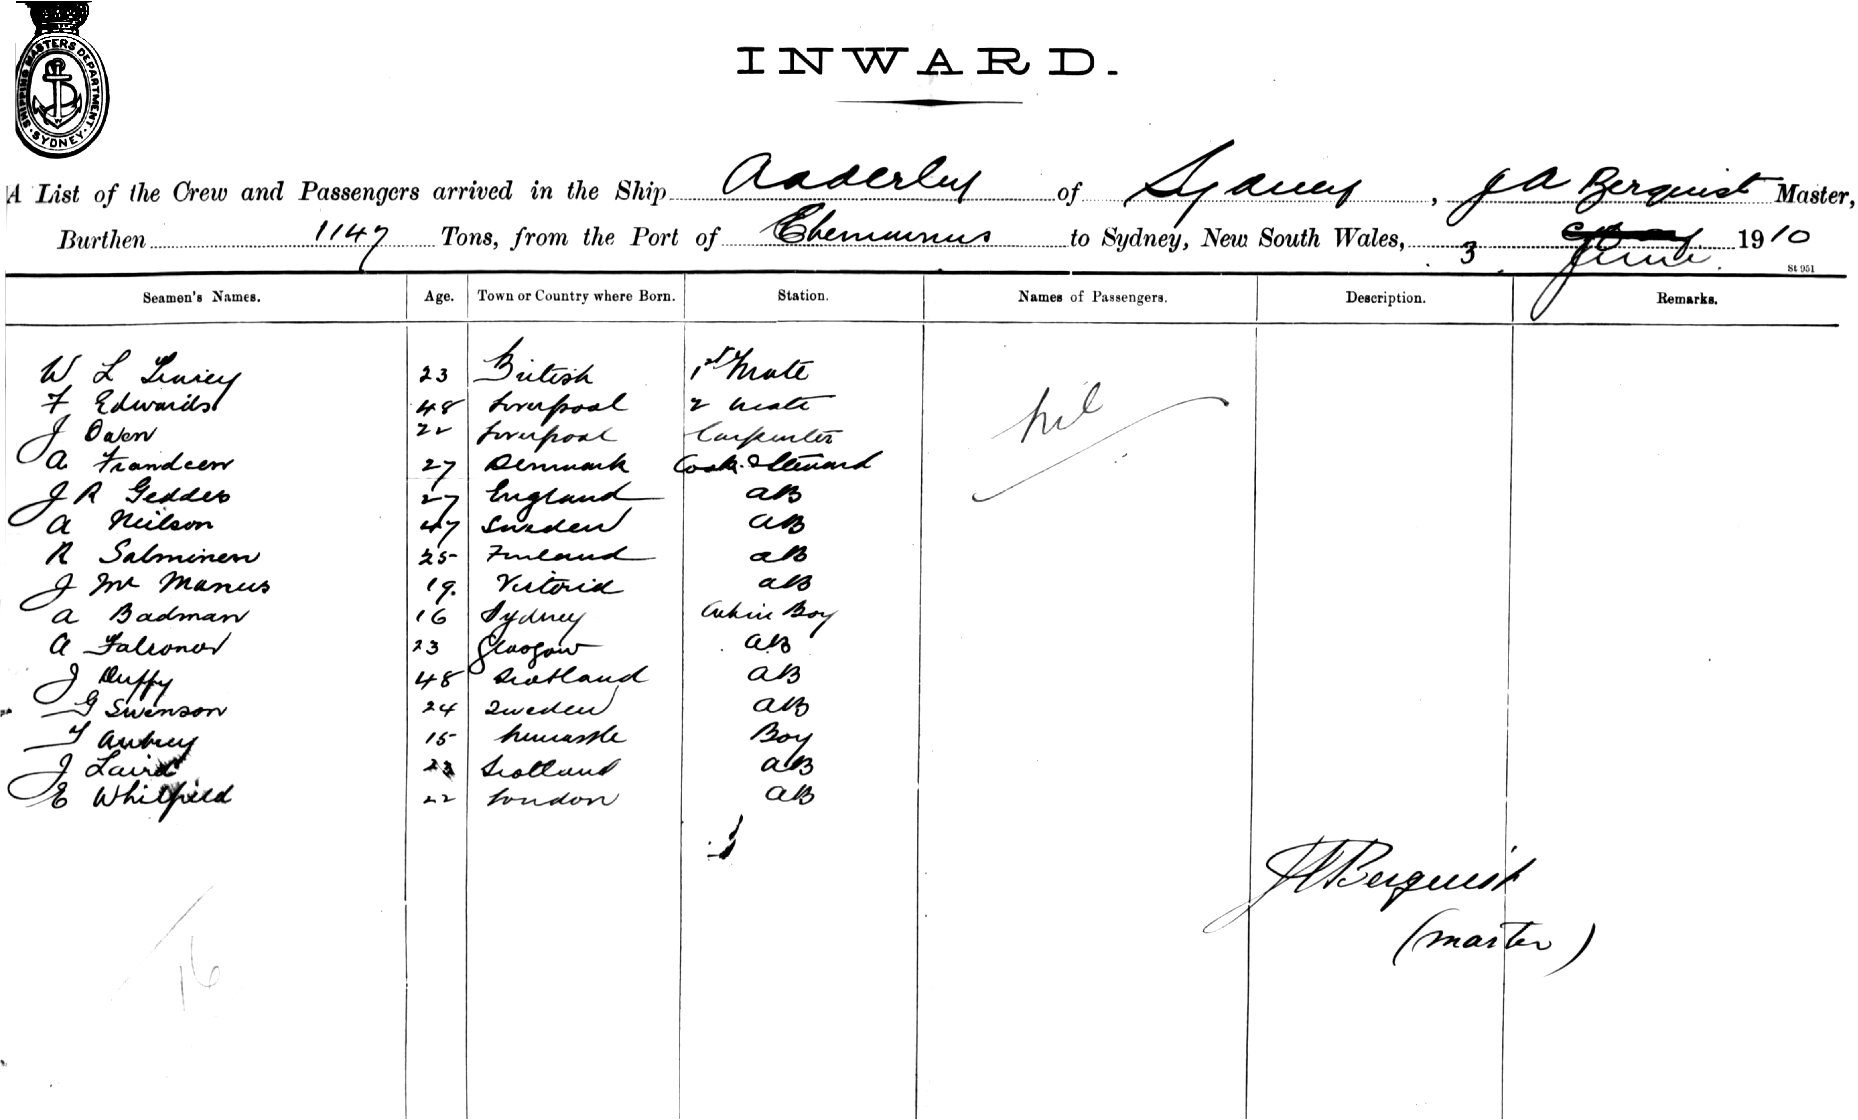 SHIPPING MASTERS DEPARTMENT. SYDNEY.
INWARD.
A List of the Crew and Passengers arrived in the Ship Adderley of Sydney, J A Berquist Master,
Burthen 1147 Tons, from the Port of Chemainus to Sydney, New South Wales, 3 June 1910
St 951
Seamen's Names. Age. Town or Country where Born. Station. Names of Passengers. Description. Remarks.
W L 23 British 1st Mate
F Edwards 48 Liverpool 2 Mate
nil
J Owen 22 Liverpool Carpenter
A Frandsen 27 Denmark Cook & Steward
J R Geddes 27 England AB
A Neilson 47 Sweden AB
R Salminen 25 Finland AB
J Mc Manus 19. Victoria AB
A Badman 16 Sydney Cabin Boy
A Falconer 23 Glasgow AB
J Duffy 48 Scotland AB
G Swenson 24 Sweden AB
T Aubrey 15 Newcastle Boy
J Laird 23 Scotland AB
E Whitfield 22 London AB
J A Berquist
(master)
16